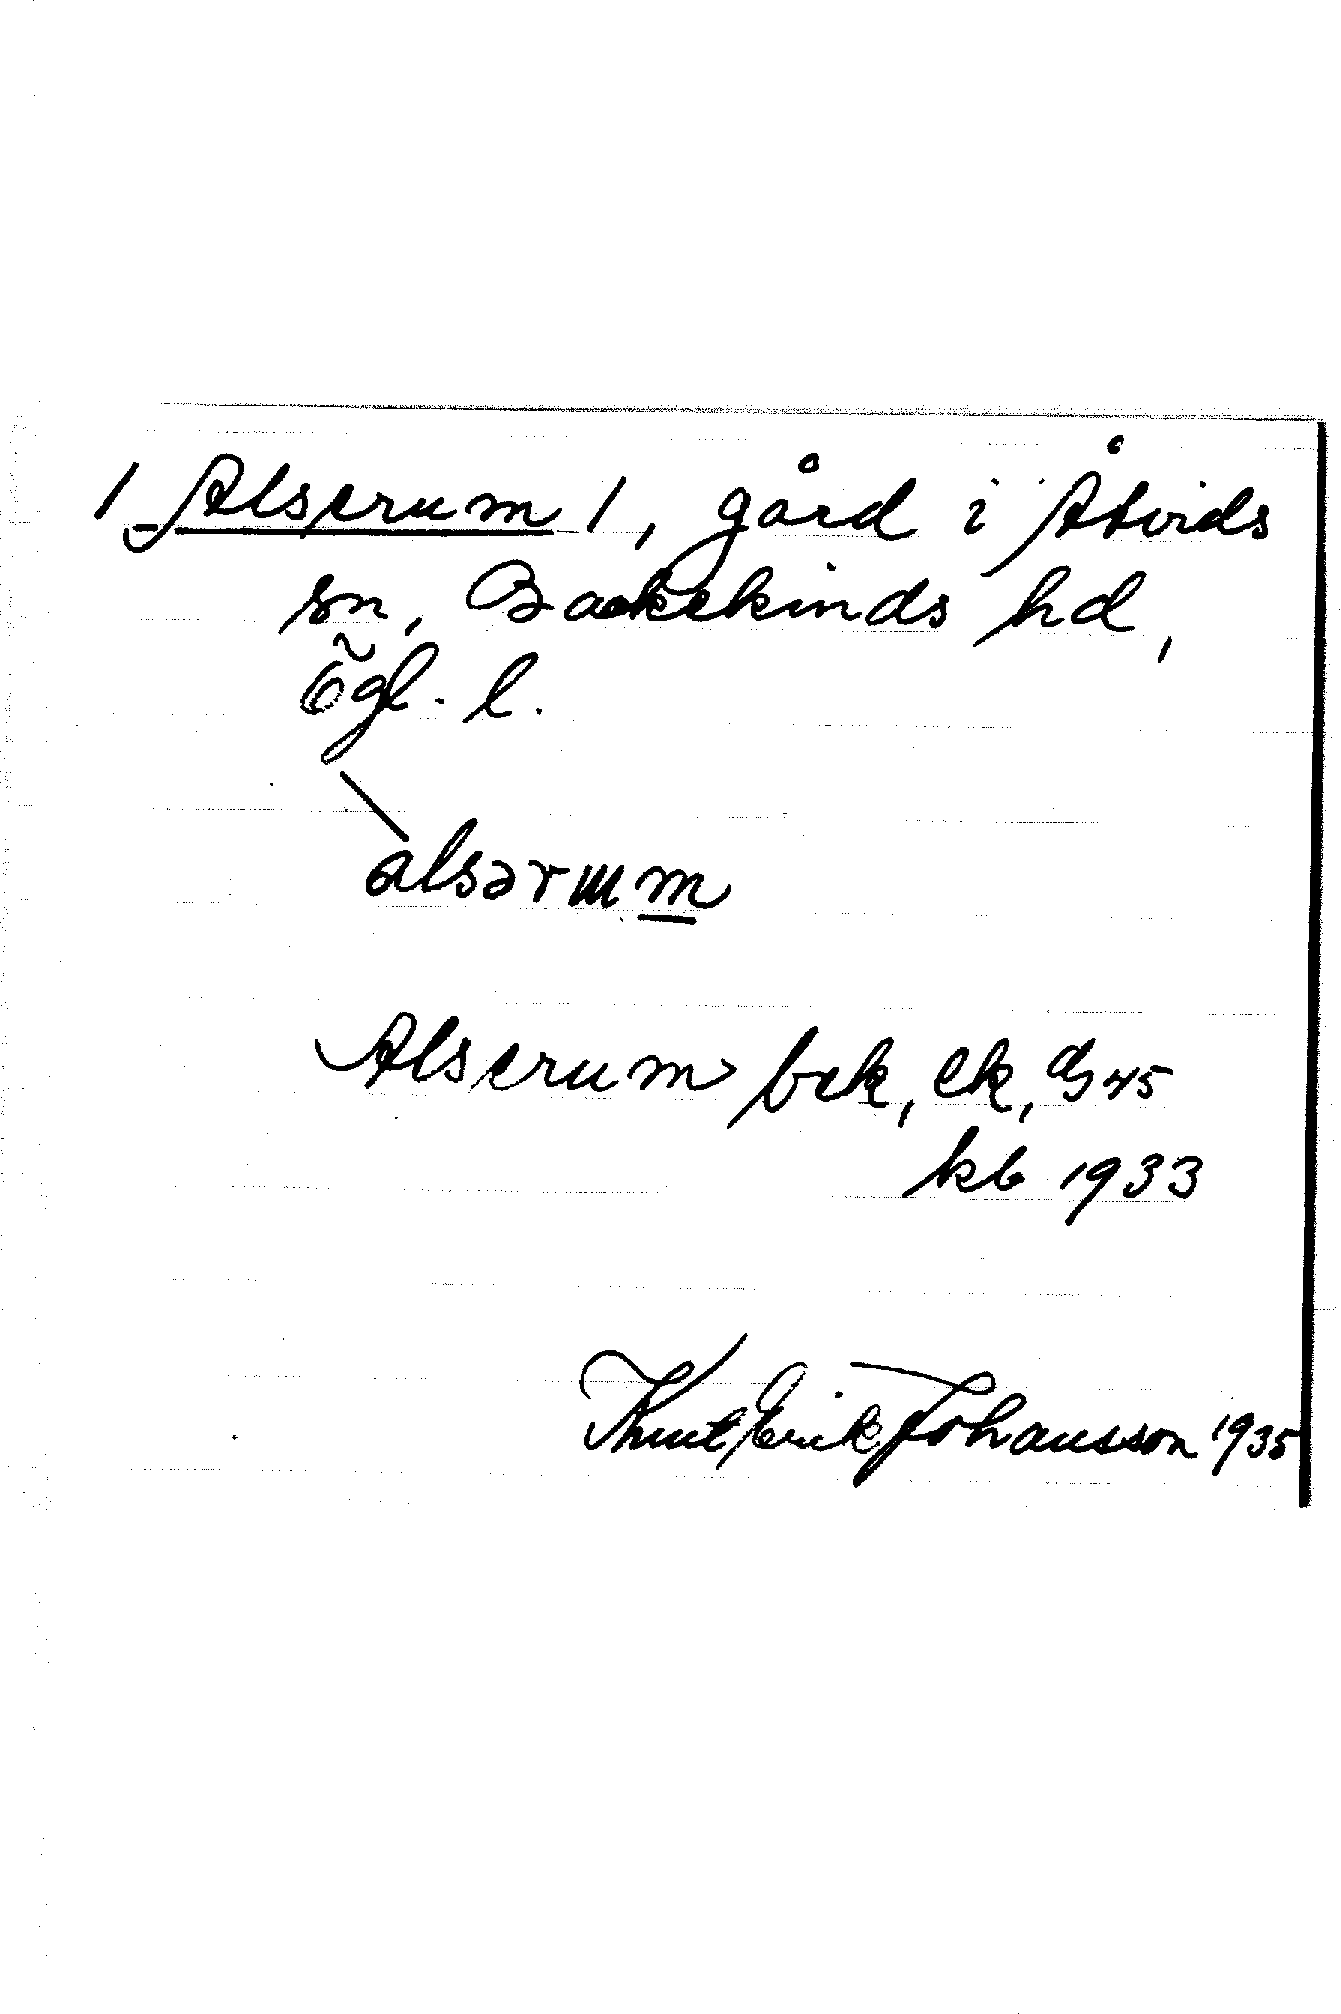 / Alserum /, gård i Åtvids
sn, Bankekinds hd,
Ögl. l.
\
alsərɯm
Alserum bek, ek, GS 45
kb 1933
Knut Erik Johansson 1935